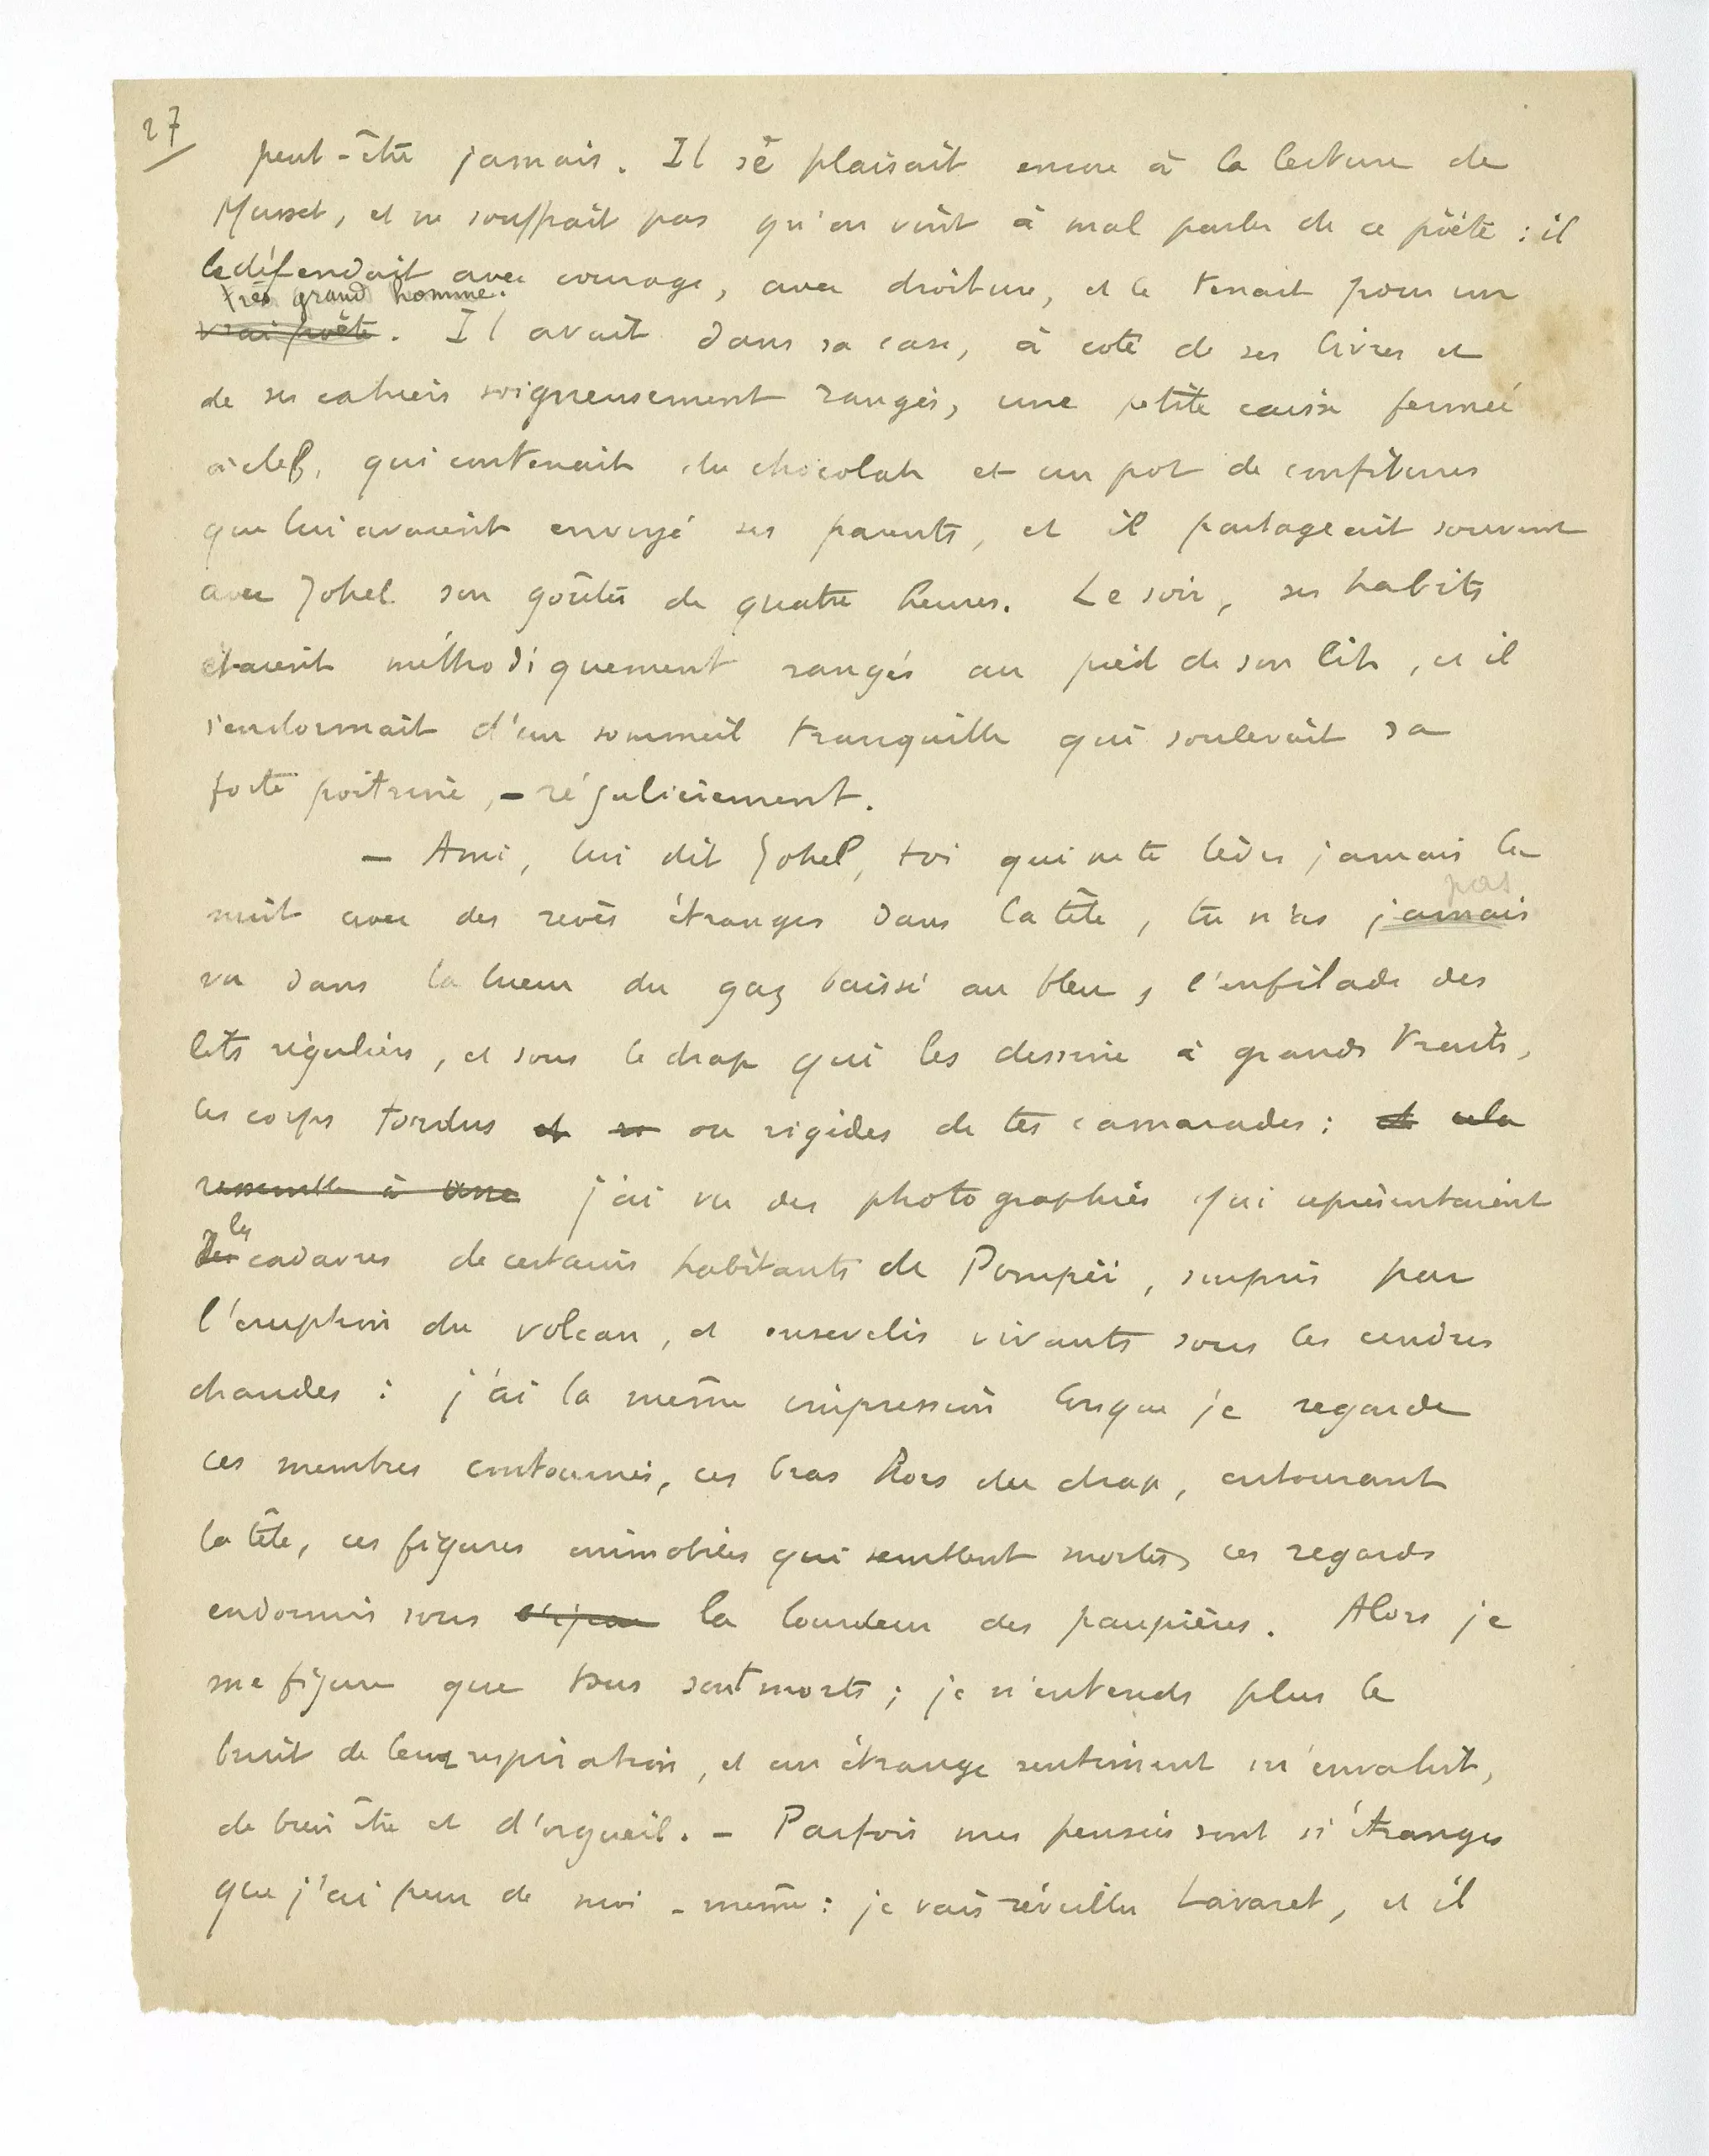 27
peut-être jamais. Il se plaisait encore à la lecture de
Musset, et ne souffrait pas qu'on vînt à mal parler de ce poète : il
le défendait avec courage, avec droiture, et le tenait pour un
très grand homme.
vrai poète. Il avait dans sa case, à coté de ses livres et
de ses cahiers soigneusement rangés, une petite caisse fermée
à clef, qui contenait du chocolat et un pot de confitures
que lui avaient envoyé ses parents, et il partageait souvent
avec Johel son goûter de quatre heures. Le soir, ses habits
étaient méthodiquement rangés au pied de son lit, et il
s'endormait d'un sommeil tranquille qui soulevait sa
forte poitrine, - régulièrement.
- Ami, lui dit Johel, toi qui ne te lèves jamais la
pas
nuit avec des rêves étranges dans la tête, tu n'as jamais
vu dans la lueur du gaz baissé au bleu, l'enfilade des
lits réguliers, et sous le drap qui les dessine à grands traits,
les corps tordus et ou rigides de tes camarades : et cela
ressemble à une j'ai vu des photographies qui représentaient
les
Des cadavres de certains habitants de Pompéi, surpris par
l'éruption du volcan, et ensevelis vivants sous les cendres
chaudes : j'ai la même impression lorsque je regarde
ces membres contournés, ces bras hors du drap, entourant
la tête, ces figures immobiles qui semblent mortes, ces regards
endormis sous la lourdeur des paupières. Alors je
me figure que tous sont morts ; je n'entends plus le
bruit de leur respiration, et un étrange sentiment m'envahit,
de bien être et d'orgueil. - Parfois mes pensées sont si étranges
que j'ai peur de moi-même : je vais réveiller Lavaret, et il